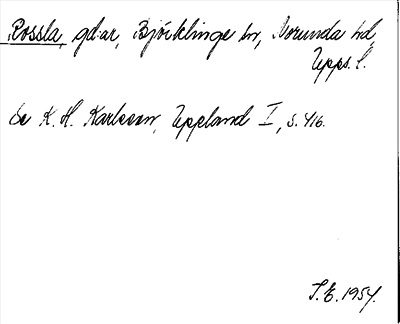 Rossla, gdar, Björklinge sn, Norunda hd,
Upps. l.
Se K. H. Karlsson, Uppland I, s. 416.
S. E. 1954.